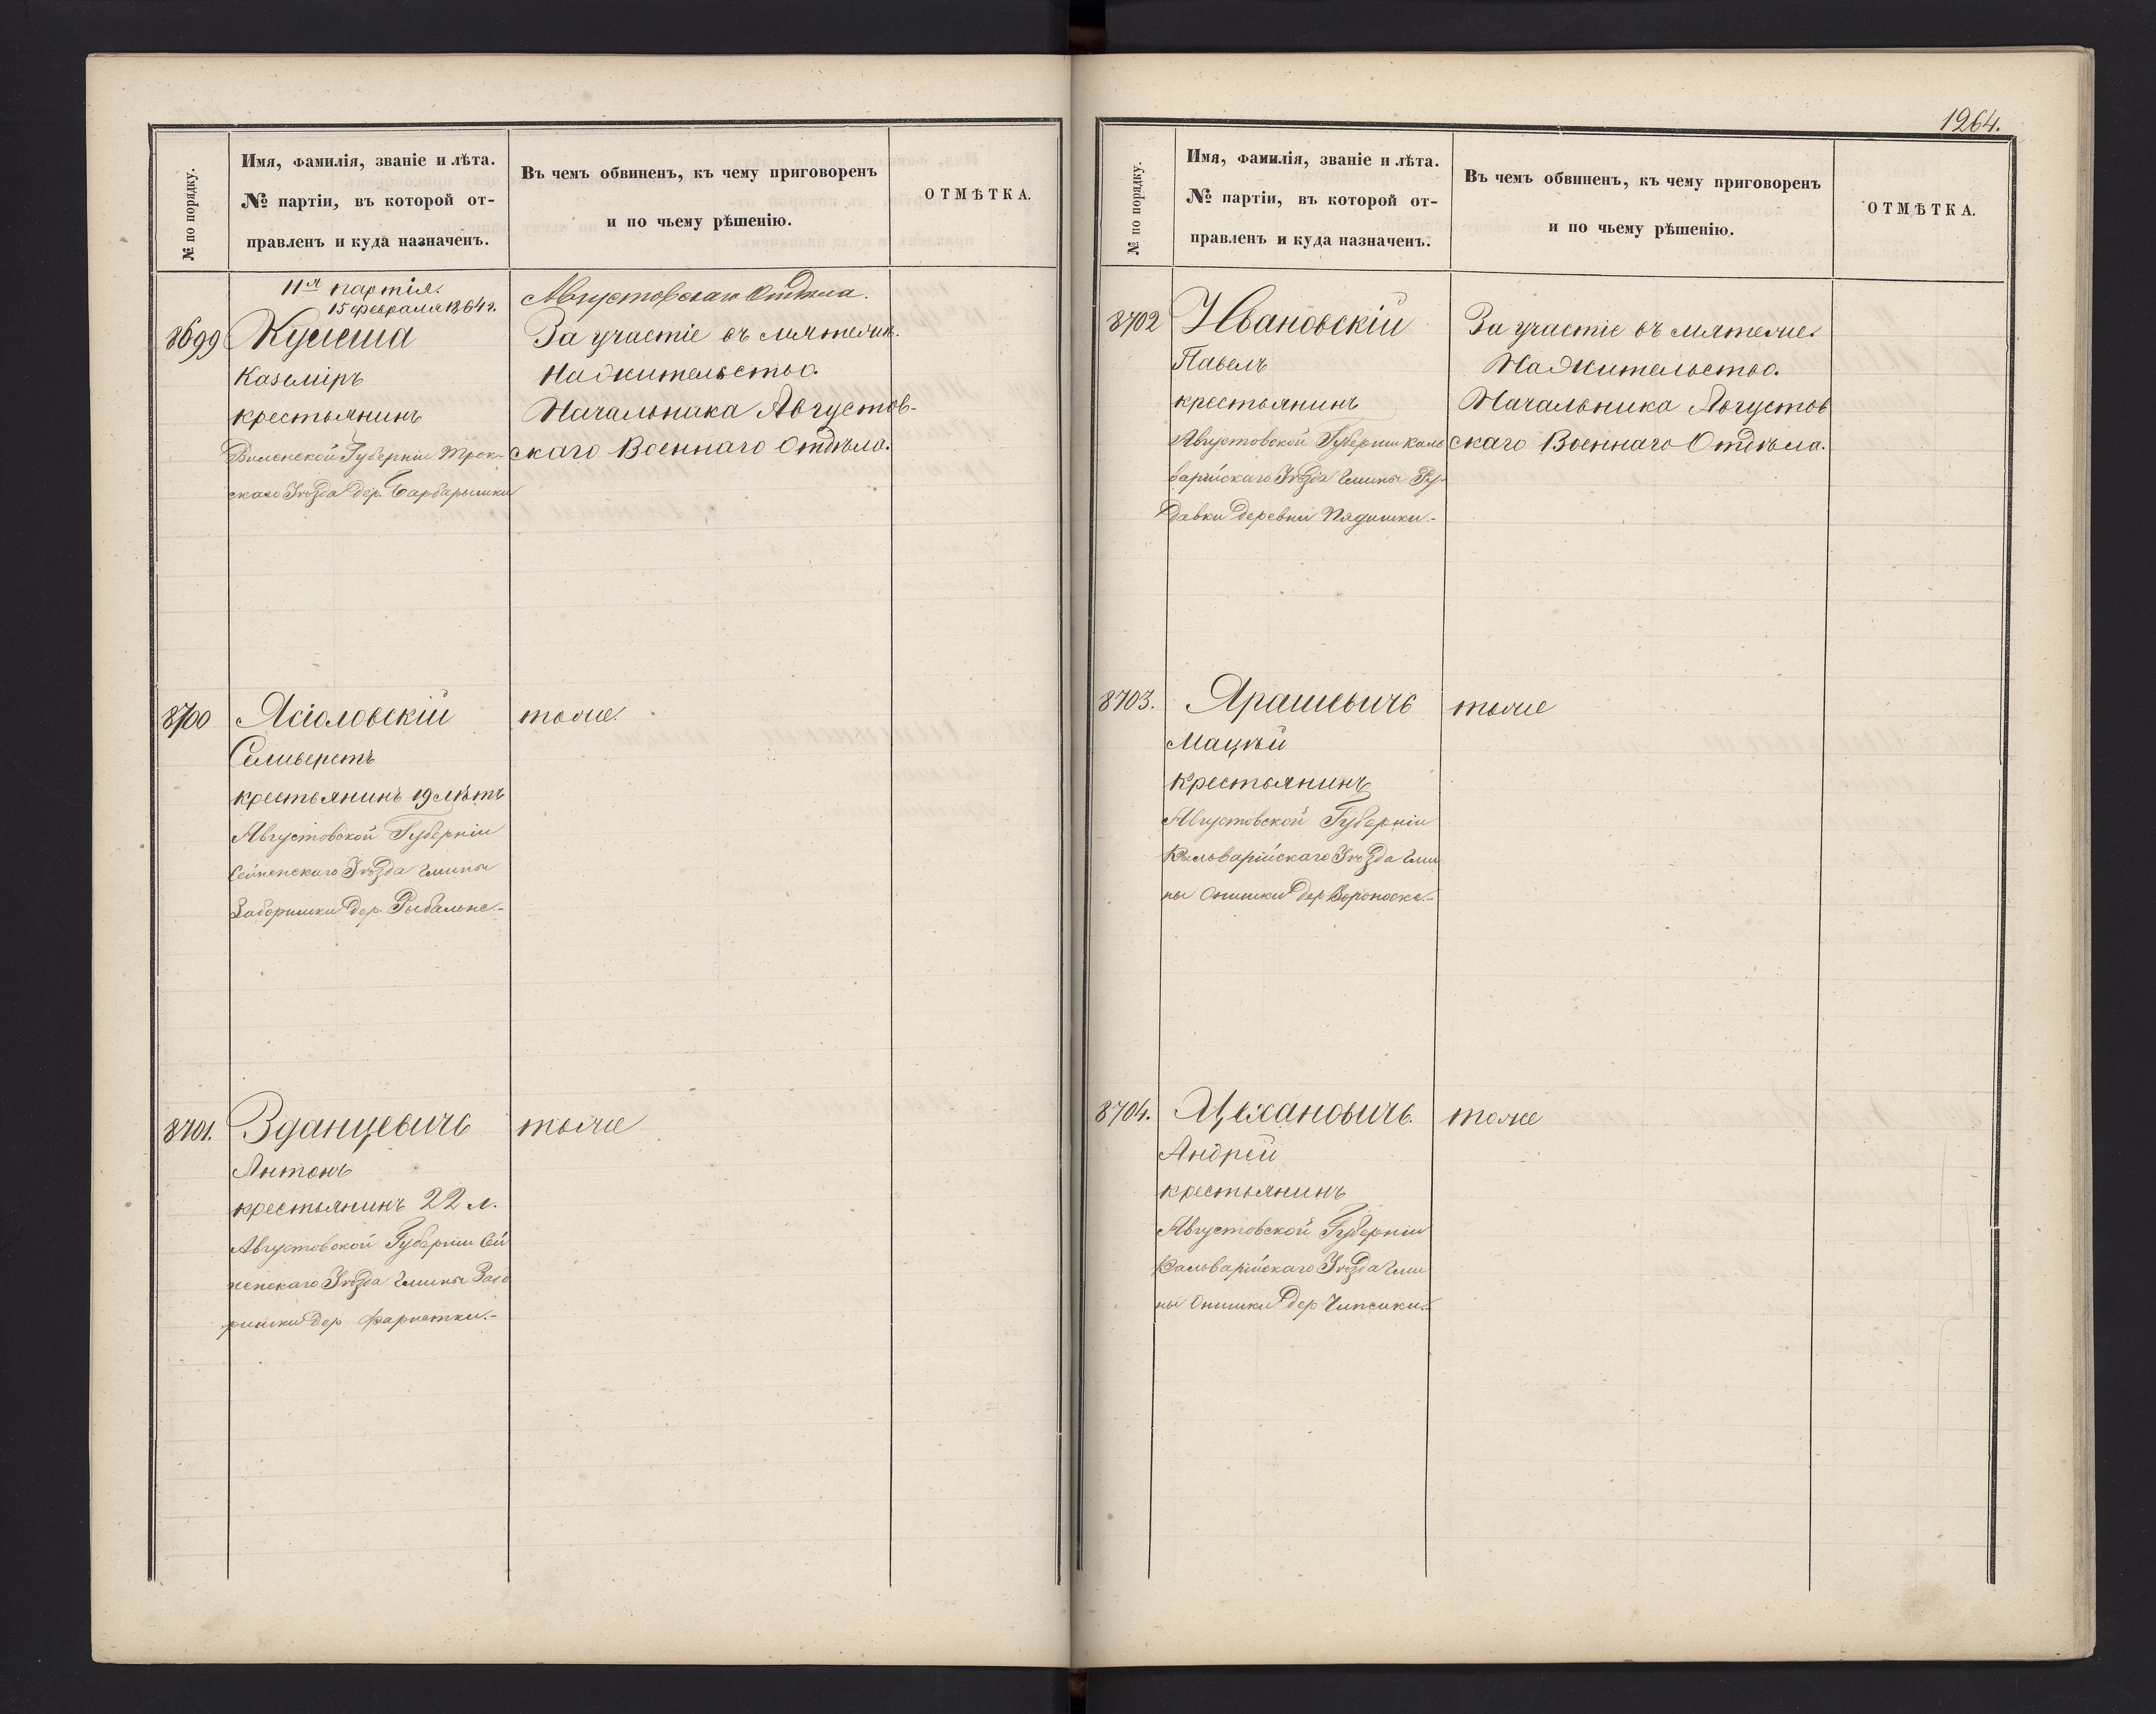 № по порядку.
Имя, фамилія, званіе и лѣта.
№ партіи, въ которой от-
правленъ и куда назначенъ.
Въ чемъ обвиненъ, къ чему приговоренъ
и по чьему рѣшенію.
ОТМѢТКА.
11я партія.
15 февраля 1864 г.
Августовскаго Отдѣла.
8699
Кулеша
Каземіръ
крестьянинъ
Виленской Губерніи Трок-
скаго Уѣзда дер. Барбарышки
За участіе въ мятежѣ.
На жительство.
Начальника Августов-
скаго Военнаго Отдѣла.
8700
Ясіоловскій
Сильверстъ
крестьянинъ 19 лѣтъ
Августовской Губерніи
Сейненскаго Уѣзда Гмины
Заборишки дер. Рыбальне.-
тоже.
8701.
Зданцевичъ
Антонъ
крестьянинъ 22 л.
Августовской Губерніи Сей
ненскаго Уѣзда Гмины Забо
ришки дер Фарнетки.-
тоже
1264.
№ по порядку.
Имя, фамилія, званіе и лѣта.
№ партіи, въ которой от-
правленъ и куда назначенъ.
Въ чемъ обвиненъ, къ чему приговоренъ
и по чьему рѣшенію.
ОТМѢТКА.
8702
Ивановскій
Павелъ
крестьянинъ
Августовской Губерніи Каль
варійскаго Уѣзда Гмины Ру-
давки деревни
За участіе въ мятеже.
На Жительство.
Начальника Августов
скаго Военнаго Отдѣла.
8703.
Ярашевичъ
Мацѣй
крестьянинъ
Августовской Губерніи
Кальварійскаго Уѣзда Гми
ны Онишки дер
тоже
8704.
Цехановичъ.
Андрей
крестьянинъ
Августовской Губерніи
Кальварійскаго Уѣзда Гми
ны Онишки дер
тоже